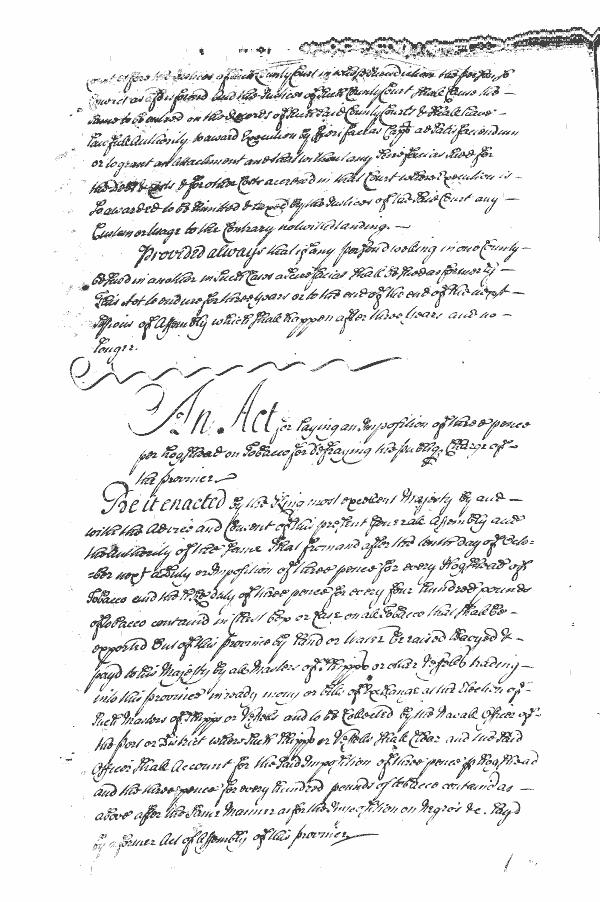 before the Justices of such County Court in
Convict as aforesaid and the Justices of such County Court shall cause the
same to be entred on the docket of such said County Courts & shall have
Lawfull Authority to award Execution by fieri facias Capis ad satisfaciendum
or to grant an attachment and that without any scire facias sued for
the Debt & Costs & for other Costs accrued in that Court where execution is
so awarded to be by the Justices of the said Court any
Custom or usage to the Contrary notwithstanding.
Provided always that if any person dwelling in one County
be sued in another in such Cases a scire facias shall be sued as formerly
This Act to endure for three years or to the end of the end of the next
Session of Assembly which shall happen after three years and no
longer.
An Act for Laying an Imposition of three pence
per hogshead on Tobacco for defraying the publiq Charge of
the province
Be it enacted by the King most excellent Majesty by and
with the Advice and Consent of this present Generall Assembly and
the Authority of the same That from and after the tenth day of Octo-
ber next a duty or Imposition of three pence for every Hogshead of
Tobacco and the like duty of three pence for every four Hundred pounds
of tobacco contained in Chest box or Case on all Tobacco that shall be
exported out of this province by Land or water be raised Leavyed &
payd to his Majesty by all Masters of Shipps or other Vessells trading
into this province in ready mony or bills of Exchange at the Election of
such Masters of Shipps or Vessells and to be Collected by the Navall Officer of
the port or District where such Shipps or Vessells shall Clear and the said
Officer shall Account for the said Imposition of three pence p hogshead
and the three pence for every hundred pounds of tobacco contained as
above after the same manner as for the Imposition on Negro's &c. layd
by a former Act of Assembly of this province